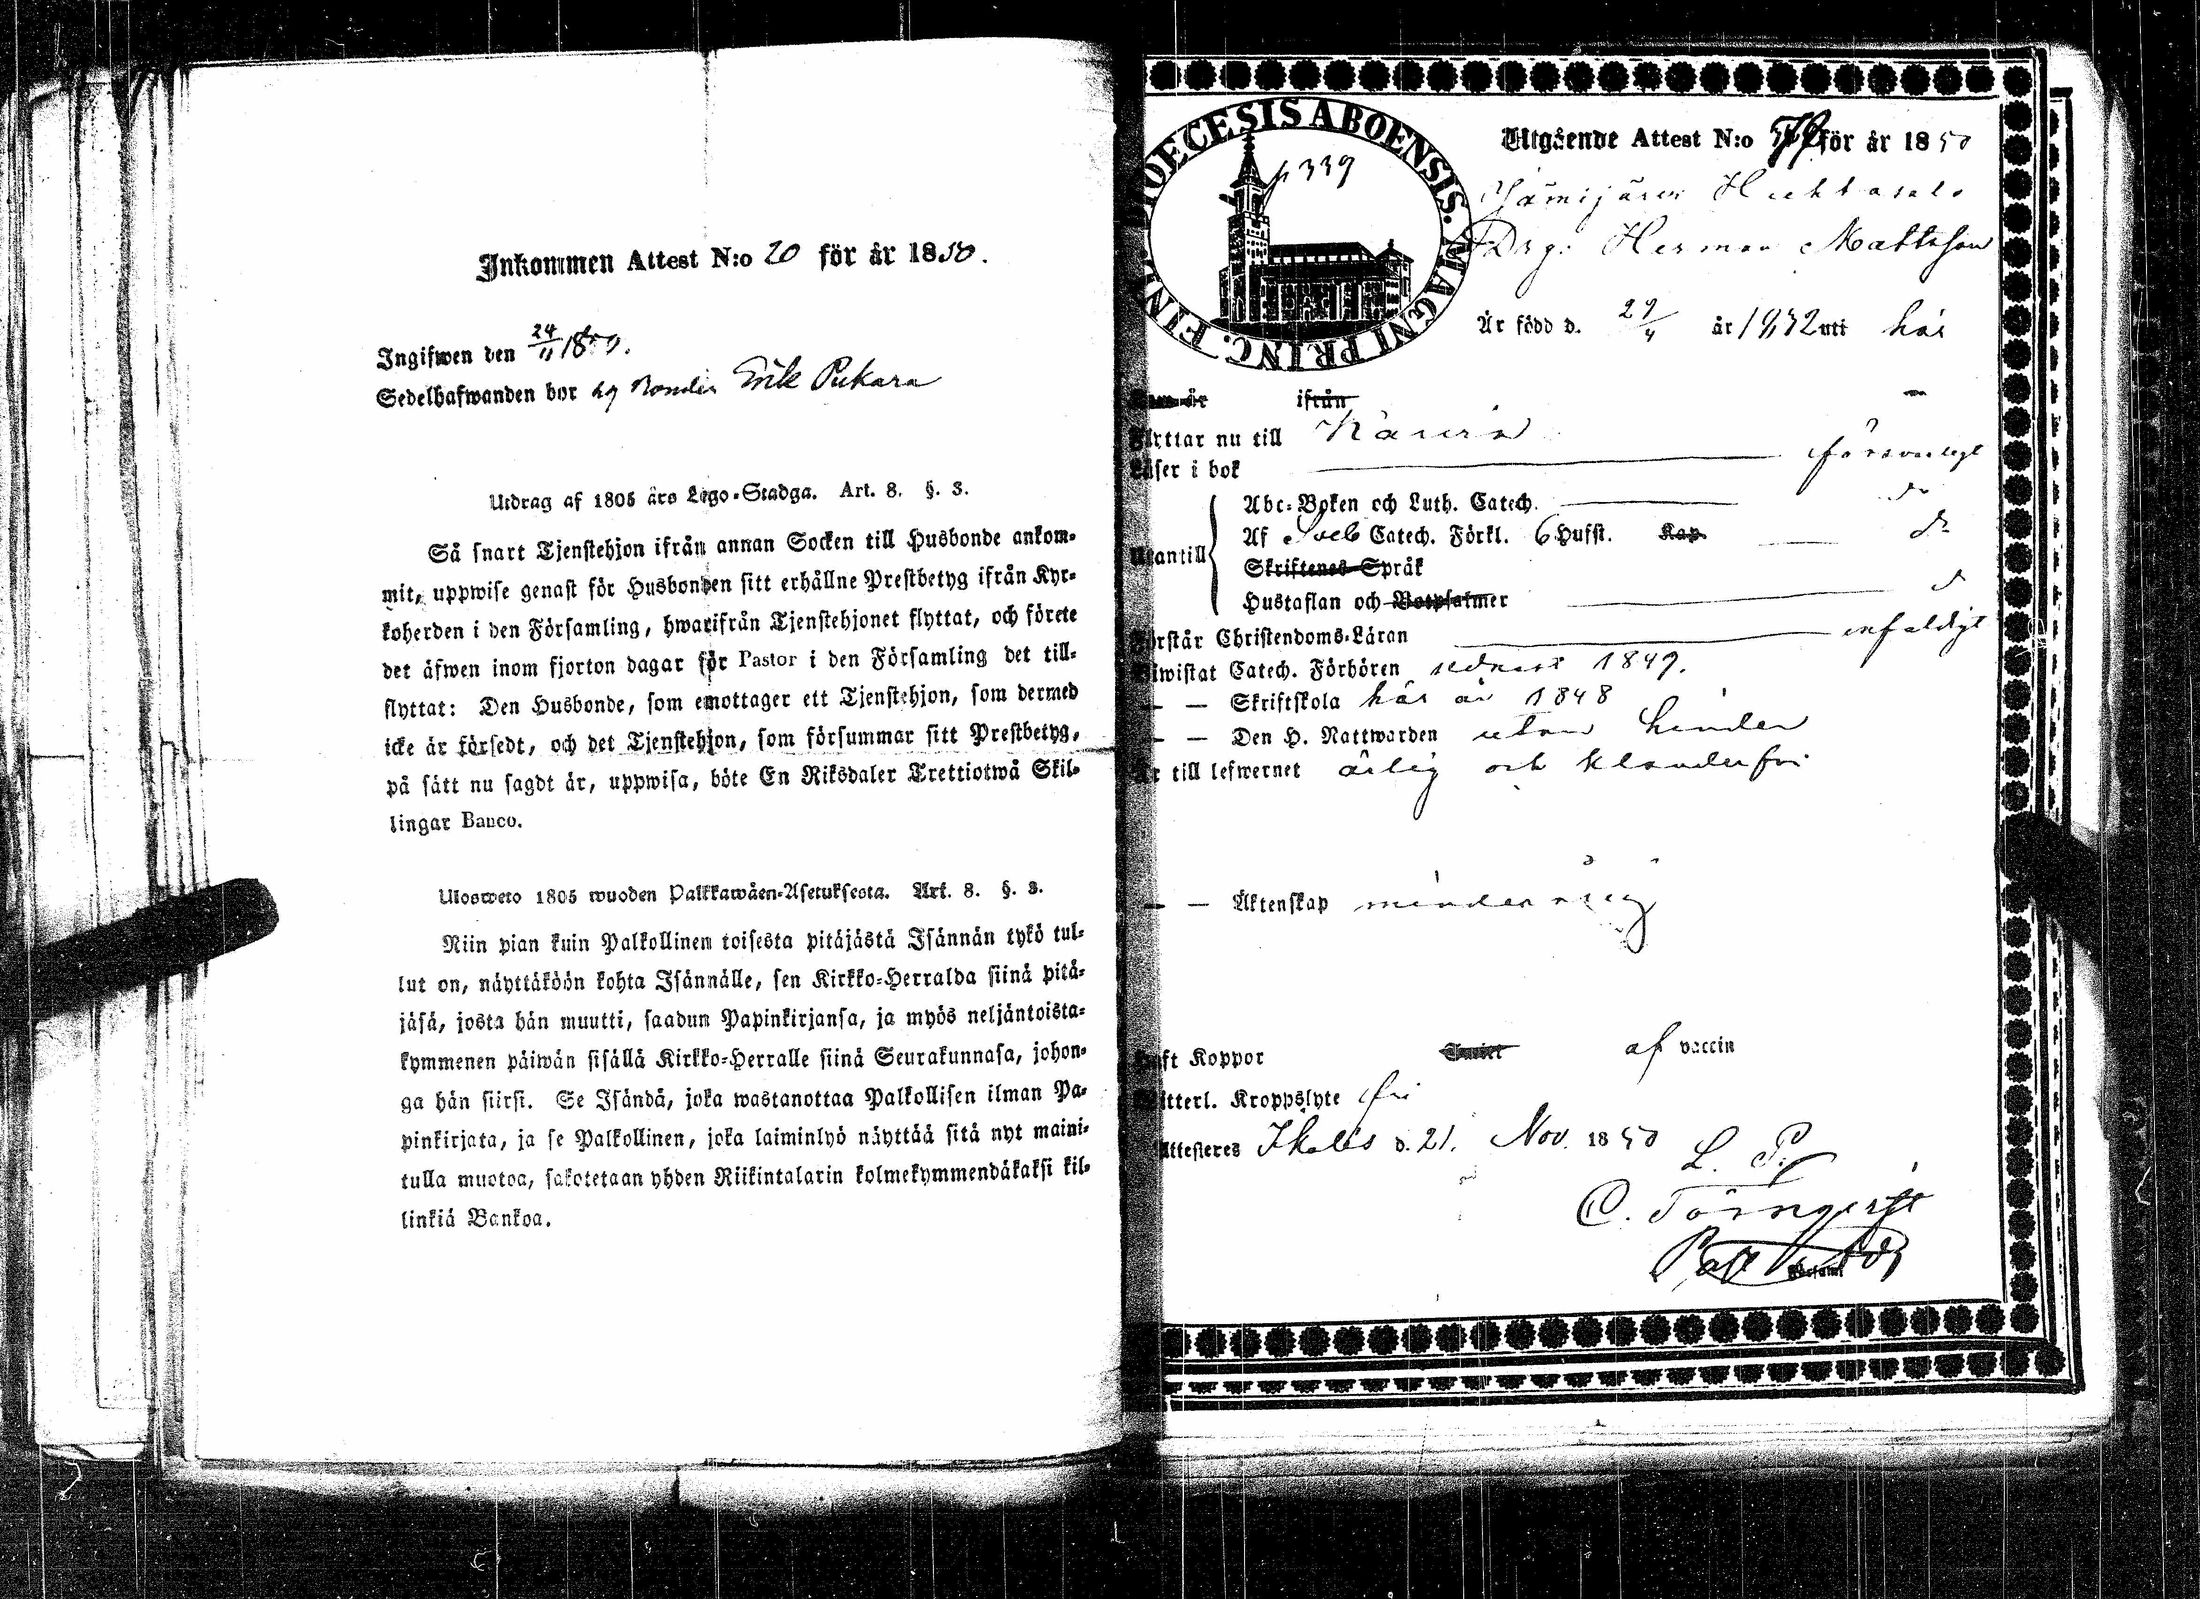 Inkommen Attest N:o 20 för år 1850.
Ingifwen den 24/11 1850.
Sedelhafwanden bor hg Bonden Erik Pukara
Utdrag af 1805 års Lego-Stadga. Art. 8. §. 3.
Så snart Tjenstehjon ifrån annan Socken till Husbonde ankom-
mit, uppwise genast för Husbonden sitt erhållne Prestbetyg ifrån Kyr-
koherden i den Församling, hwarifrån Tjenstehjonet flyttat, och förete
det äfwen inom fjorton dagar för Pastor i den Församling det till-
flyttat: Den Husbonde, som emottager ett Tjenstehjon, som dermed
icke är försedt, och det Tjenstehjon, som försummar sitt Prestbetyg,
på sätt nu sagdt är, uppwisa, böte En Riksdaler Trettiotwå Skil-
lingar Banco.
Ulosweto 1805 wuoden Palkkawäen-Asetuksesta. Art. 8. §. 3.
Niin pian kuin Palkollinen toisesta pitäjästä Isännän tykö tul-
lut on, näyttäköön kohta Isännälle, sen Kirkko-Herralda siinä pitä-
jäsä, josta hän muutti, saadun Papinkirjansa, ja myös neljäntoista-
kymmenen päiwän sisällä Kirkko-Herralle siinä Seurakunnasa, johon-
ga hän siirsi. Se Isändä, joka wastanottaa Palkollisen ilman Pa-
pinkirjata, ja se Palkollinen, joka laiminlyö näyttää sitä nyt maini-
tulla muotoa, sakotetaan yhden Riikintalarin kolmekymmendäkaksi kil-
linkiä Bankoa.
DIOECESIS ABOENSIS. MAGNI PRINC. FINL.
p 339
Utgående Attest N:o för år 1850
Jämijärvi
Drg. Herman Mattsson
Är född d. 29/4 år 1832 uti här
ifrån
Flyttar nu till
Läser i bok försvarligt
Abc-Boken och Luth. Catech. do
Af Sveb Catech. Förkl. 6 Hufst. Kap. do
Utantill
Skriftenes Språk
Hustaflan och Botpsalmer d
Förstår Christendoms-Läran enfaldigt
Biwistat Catech. Förhören sednast 1849.
— — Skriftskola här år 1848
— — Den H. Nattwarden utan hinder
Är till lefwernet ärlig och klanderfri
— — Äktenskap minderårig
Haft Koppor af vaccin
Witterl. Kroppslyte fri
Attesteres Ikalis d. 21. Nov. 1850
L. S.
C. Törnqvist